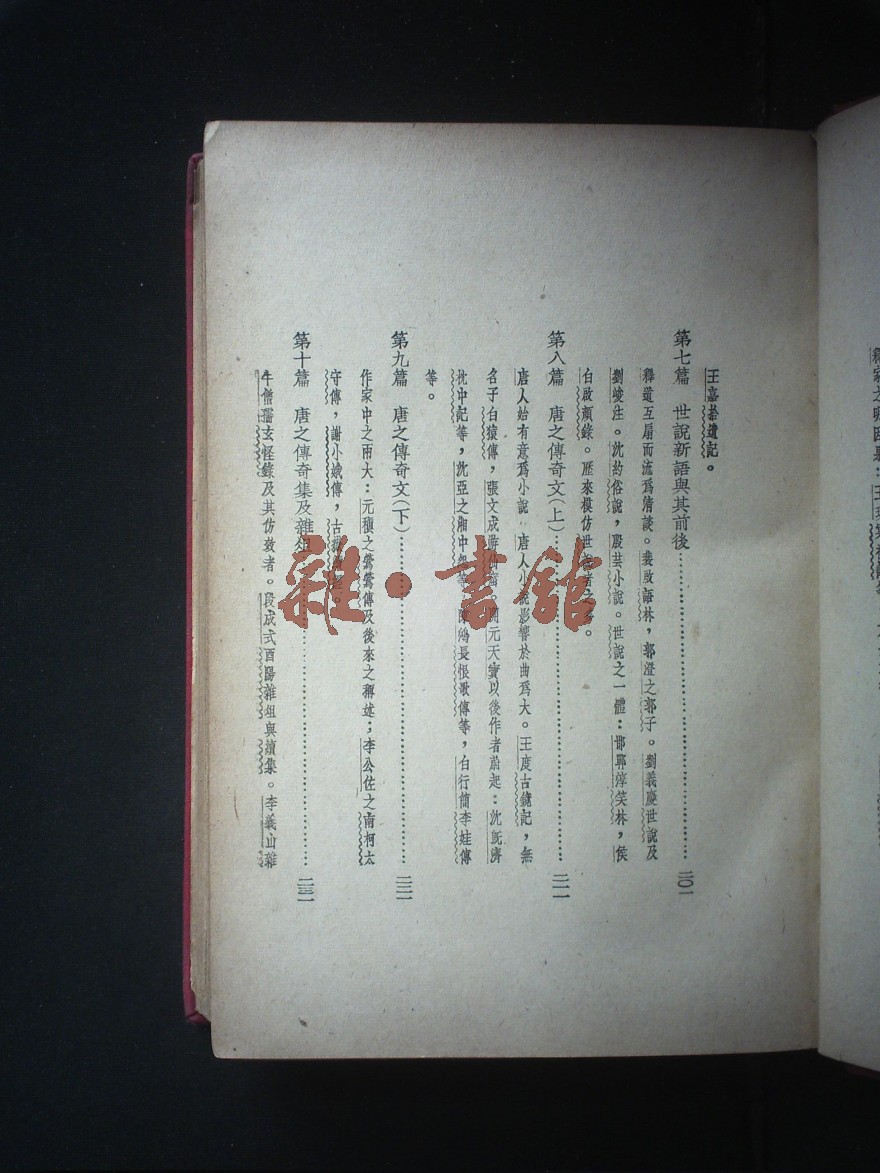 王嘉拾遺記。
第七篇 世說新語與其前後……二〇一
釋道互扇而流爲清談。裴啟語林，郭澄之郭子。劉義慶世說及
劉峻注。沈約俗說，殷芸小說。世說之一體：邯鄲淳笑林，侯
白啟顏錄。歷來模仿世說者之多。
第八篇 唐之傳奇文（上）……二一一
唐人始有意爲小說 唐人小說影響於曲爲大。王度古鏡記，無
名子白猿傳，張文成 。開元天寶以後作者蔚起：沈旣濟
枕中記等，沈亞之湘中怨等，陳鴻長恨歌傳等，白行簡李娃傳
等。
第九篇 唐之傳奇文（下）……二二一
作家中之兩大：元稹之鶯鶯傳及後來之稱述；李公佐之南柯太
守傳，謝小娥傳，古
第十篇 唐之傳奇集及雜俎……二三一
牛僧孺玄怪錄及其仿效者。段成式酉陽雜俎與續集。李義山雜
雜·書館